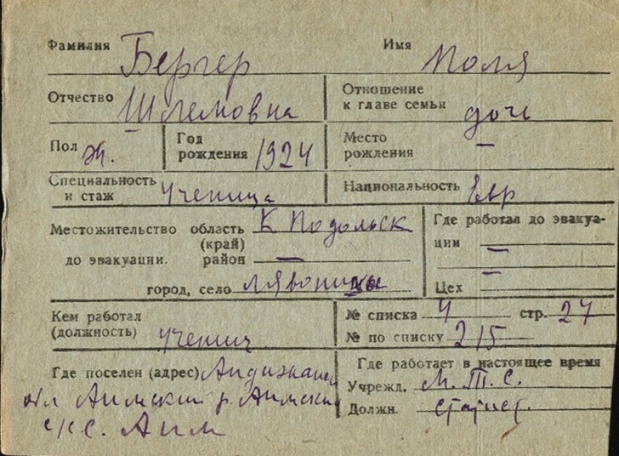 Фамилия Бергер Имя Поля
Отчество Шлемовна Отношение к главе семьи дочь
Пол ж. Год рождения 1924 Место рождения —
Специальность и стаж Ученица Национальность Евр
Местожительство область (край) К Подольск Где работал до эвакуации —
до эвакуации. район — —
город, село Цех
Кем работал (должность) учениц № списка 4 стр. 27
№ по списку 215
Где поселен (адрес) Андижанск Где работает в настоящее время
обл Аимский р. Аимский Учрежд. М.Т.С.
с/с с. Аим Должн. статист.